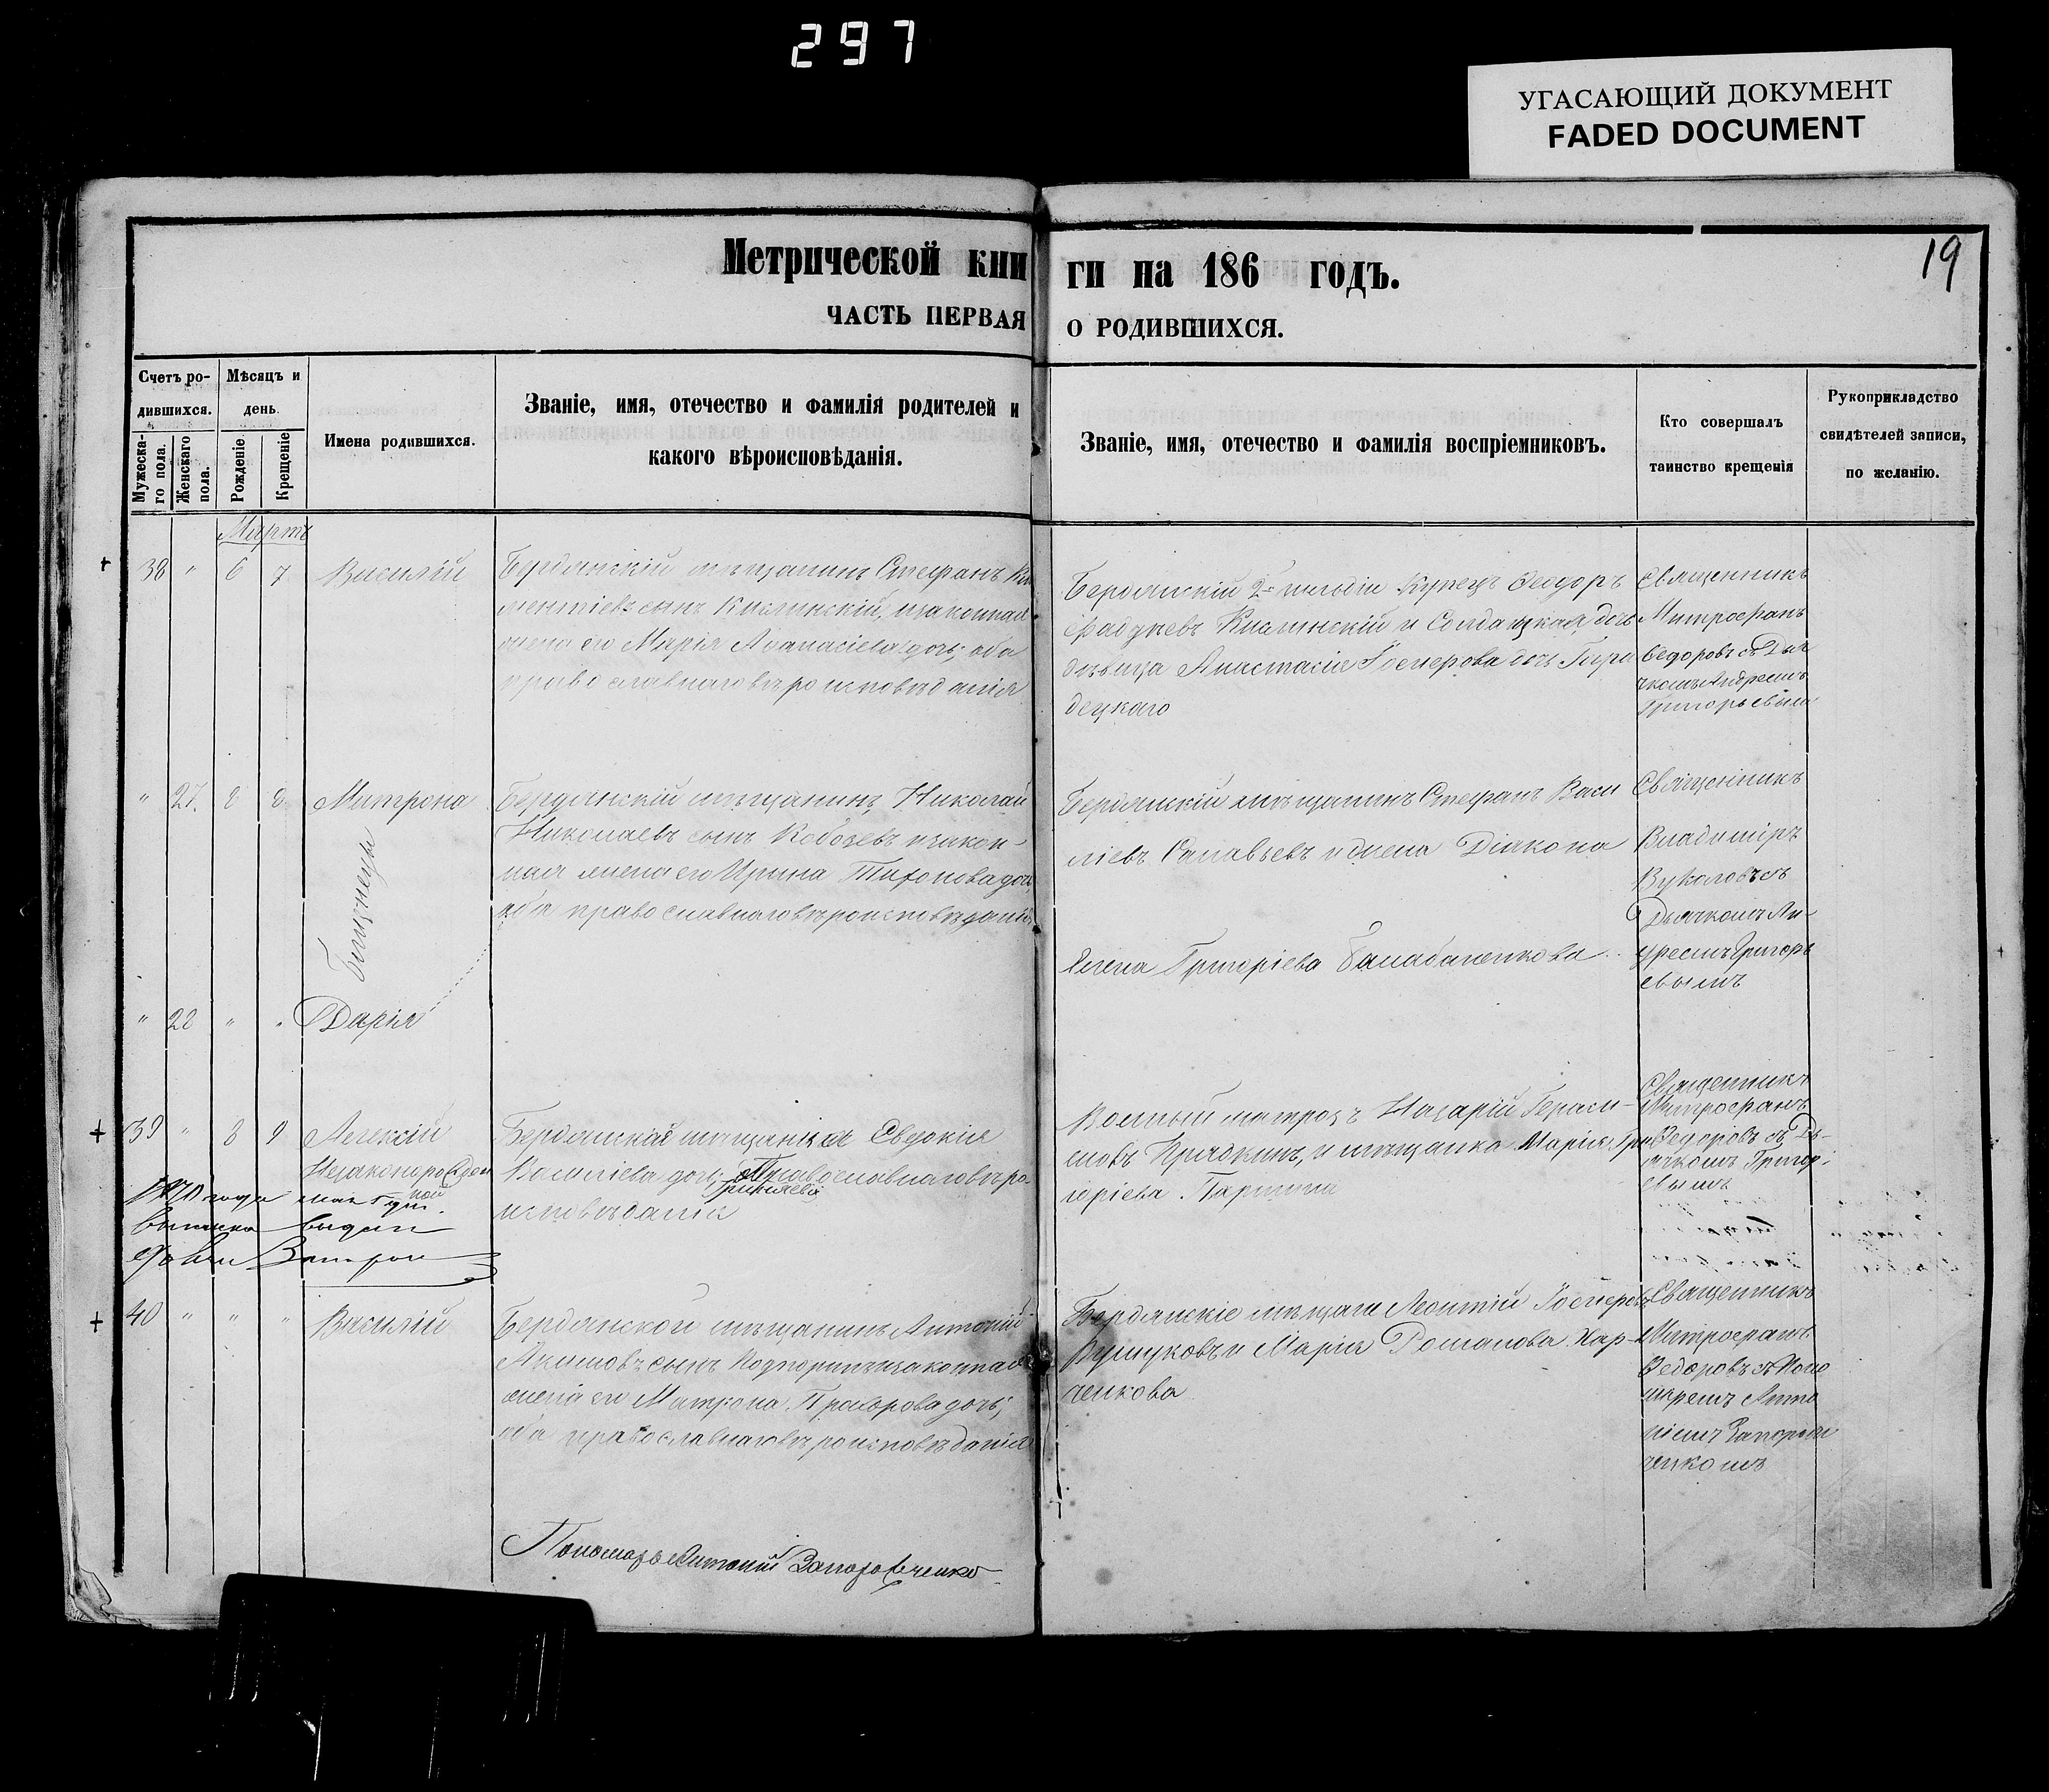 297
УГАСАЮЩИЙ ДОКУМЕНТ
FADED DOCUMENT
19
Метрической кни ги на 186 годъ.
ЧАСТЬ ПЕРВАЯ О РОДИВШИХСЯ.
Счетъ ро-
дившихся.
Мужеска-
го пола.
Женскаго
пола.
Мѣсяцъ и
день.
Рожденіе.
Крещеніе
Имена родившихся.
Званіе, имя, отечество и фамилія родителей и
какого вѣроисповѣданія.
Званіе, имя, отечество и фамилія воспріемниковъ.
Кто совершалъ
таинство крещенія
Рукоприкладство
свидѣтелей записи,
по желанію.
Мартъ
38 " 6 7 Василій
Бердянскій мѣщанинъ Стефанъ Кли
ментіевъ сынъ Кислинскій, и законная
жена его Марія Аѳанасіева дочь; оба
православнаго вѣроисповѣданія
Бердянскій 2й гильдіи купецъ Ѳеодоръ
Кислинскій и Солдатская дочь
дѣвица Анастасія дочь
децкаго
Священникъ
Митрофанъ
Ѳедоровъ съ Дья
чкомъ Андреемъ
Григорьевымъ
" 27. 8 8 Матрона
Близнецы
Бердянскій мѣщанинъ, Николай
Николаевъ сынъ Кобозевъ и закон-
ная жена его Ирина Тихонова дочь,
оба православнаго вѣроисповѣданія
Бердянскій мѣщанинъ Стефанъ Васи
ліевъ и жена Діакона
Елена Григоріева Балабаненкова
Священникъ
Владиміръ
Вуколовъ съ
Дьячкомъ Ан-
дреемъ Григорь
евымъ
" 28 " " Дарія
39 " 8 9 Алексій
Незаконорожден
ной
1870 года мая 5 дня
выписка выдан
Бердянская мѣщанка Евдокія
Василіева дочь Православнаго вѣро
исповѣданія
Военный матрозъ Назарій Гераси-
мовъ и мѣщанка Марія Гри
горіева
Священникъ
Митрофанъ
Ѳедоровъ съ Дь-
ячкомъ Григорі-
евымъ
40 " " " Василій
Бердянской мѣщанинъ Антоній
Акимовъ сынъ Подпоринъ и законная
жена его Матрона Прохорова дочь;
оба православнаго вѣроисповѣданія
Бердянскіе мѣщане Леонтій
и Марія Романова Хар-
ченкова
Священникъ
Митрофанъ
Ѳедоровъ съ Поно
маремъ Анто
ніемъ Запорож
ченкомъ
Пономарь Антоній Запорожченко